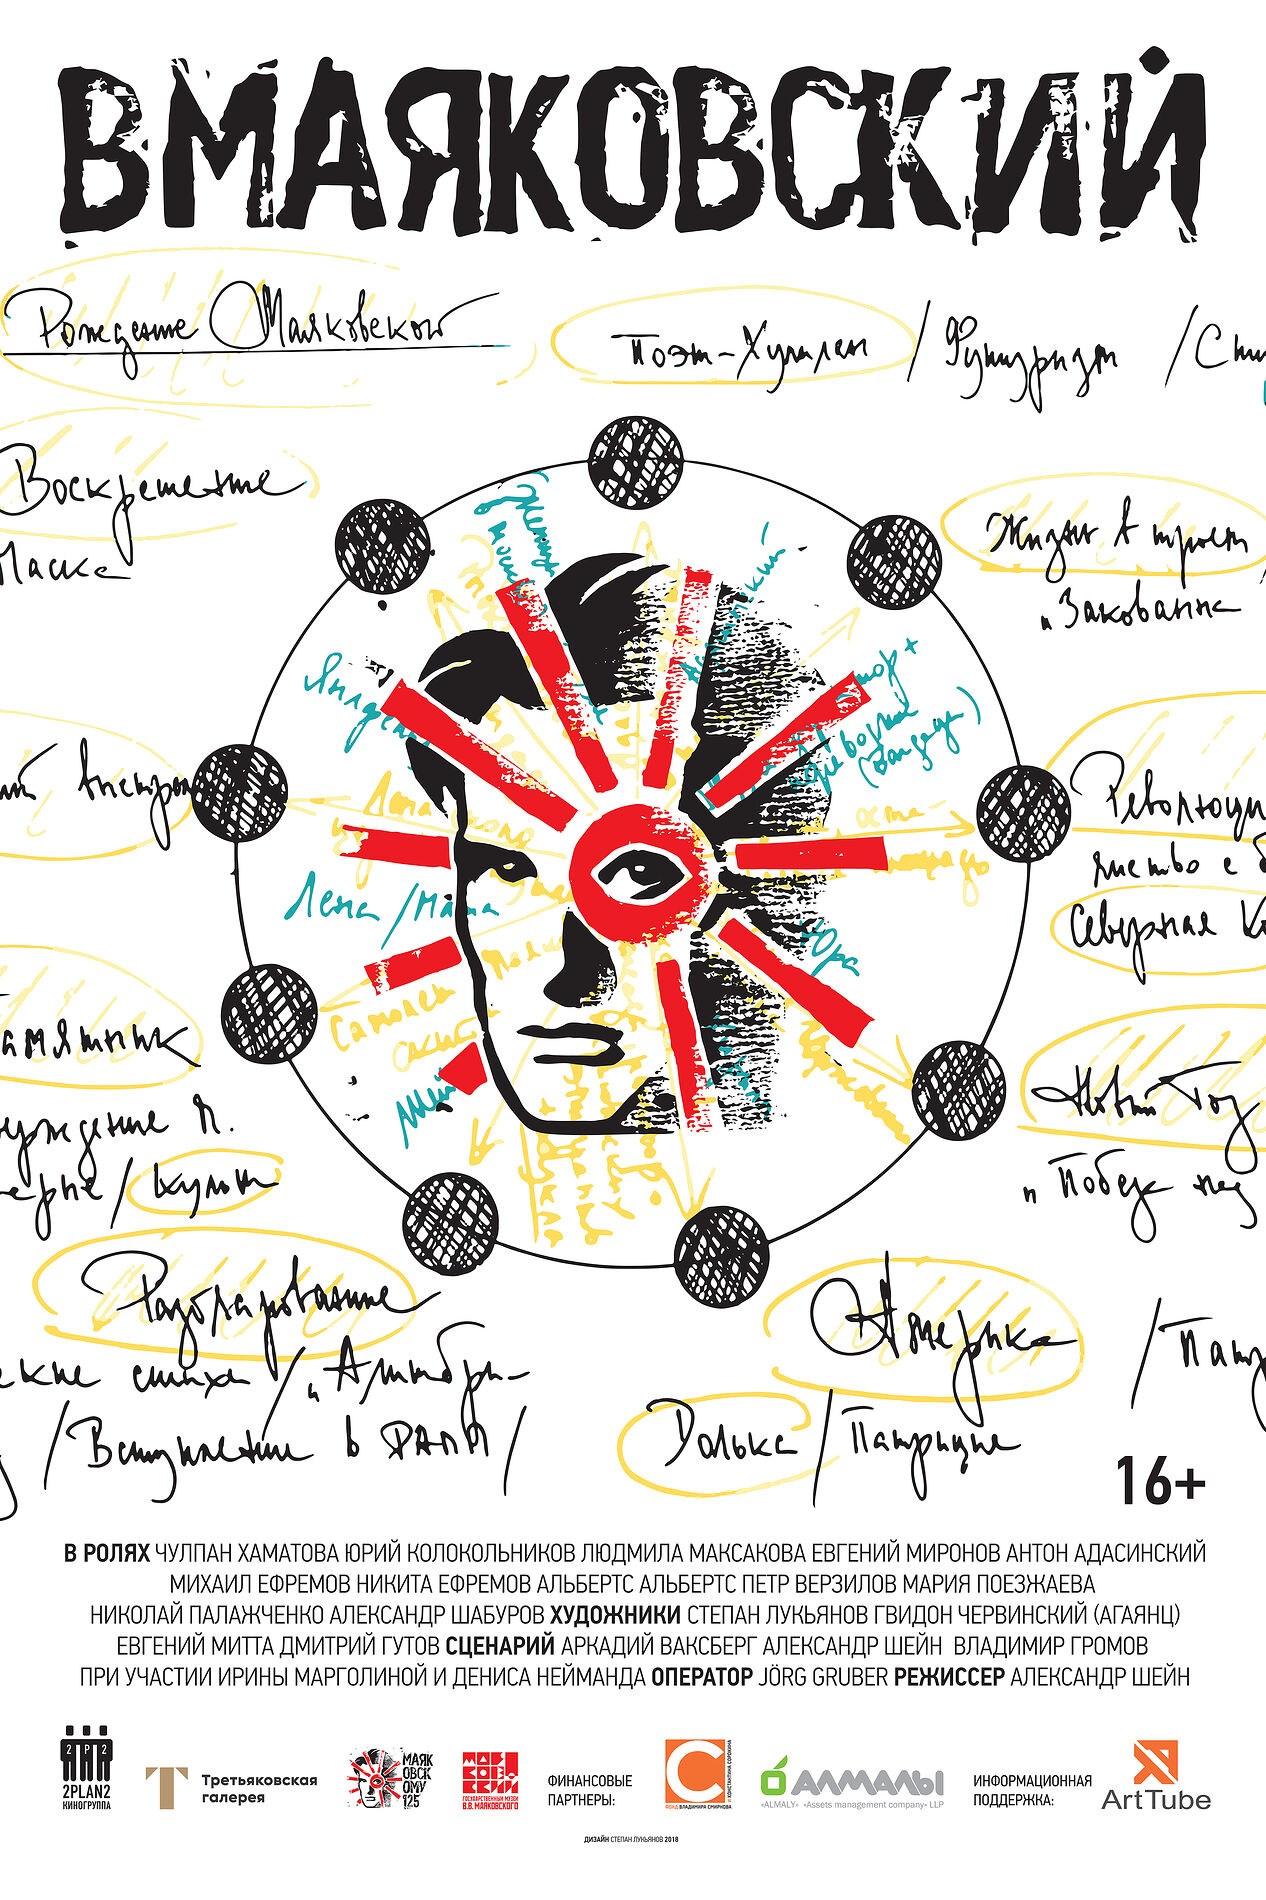 ВМАЯКОВСКИЙ
Рождение Маяковского
Поэт-Хулиган / Футуризм /
Воскрешение
Маска
Жизнь в
„Закованная
Революци
Северная Ко
Новый Год
„Победа над
амятник
ерждение Я.
/ культ
Разочарование
ские стихи /
/ Вступление в РАПП /
Америка
/ Патр
Долька / Патриция
Лена / Маша
Юра
Самолет
16+
В РОЛЯХ ЧУЛПАН ХАМАТОВА ЮРИЙ КОЛОКОЛЬНИКОВ ЛЮДМИЛА МАКСАКОВА ЕВГЕНИЙ МИРОНОВ АНТОН АДАСИНСКИЙ
МИХАИЛ ЕФРЕМОВ НИКИТА ЕФРЕМОВ АЛЬБЕРТС АЛЬБЕРТС ПЕТР ВЕРЗИЛОВ МАРИЯ ПОЕЗЖАЕВА
НИКОЛАЙ ПАЛАЖЧЕНКО АЛЕКСАНДР ШАБУРОВ ХУДОЖНИКИ СТЕПАН ЛУКЬЯНОВ ГВИДОН ЧЕРВИНСКИЙ (АГАЯНЦ)
ЕВГЕНИЙ МИТТА ДМИТРИЙ ГУТОВ СЦЕНАРИЙ АРКАДИЙ ВАКСБЕРГ АЛЕКСАНДР ШЕЙН ВЛАДИМИР ГРОМОВ
ПРИ УЧАСТИИ ИРИНЫ МАРГОЛИНОЙ И ДЕНИСА НЕЙМАНДА ОПЕРАТОР JÖRG GRUBER РЕЖИССЕР АЛЕКСАНДР ШЕЙН
2P2
2PLAN2
КИНОГРУППА
Третьяковская
галерея
МАЯК
ОВСК
ОМУ
125
МАЯ
КОВ
СКИЙ
ГОСУДАРСТВЕННЫЙ МУЗЕЙ
В.В. МАЯКОВСКОГО
ФИНАНСОВЫЕ
ПАРТНЕРЫ:
С
ФОНД ВЛАДИМИРА СМИРНОВА
И КОНСТАНТИНА СОРОКИНА
АЛМАЛЫ
«ALMALY» «Assets management company» LLP
ИНФОРМАЦИОННАЯ
ПОДДЕРЖКА:
ArtTube
ДИЗАЙН СТЕПАН ЛУКЬЯНОВ 2018